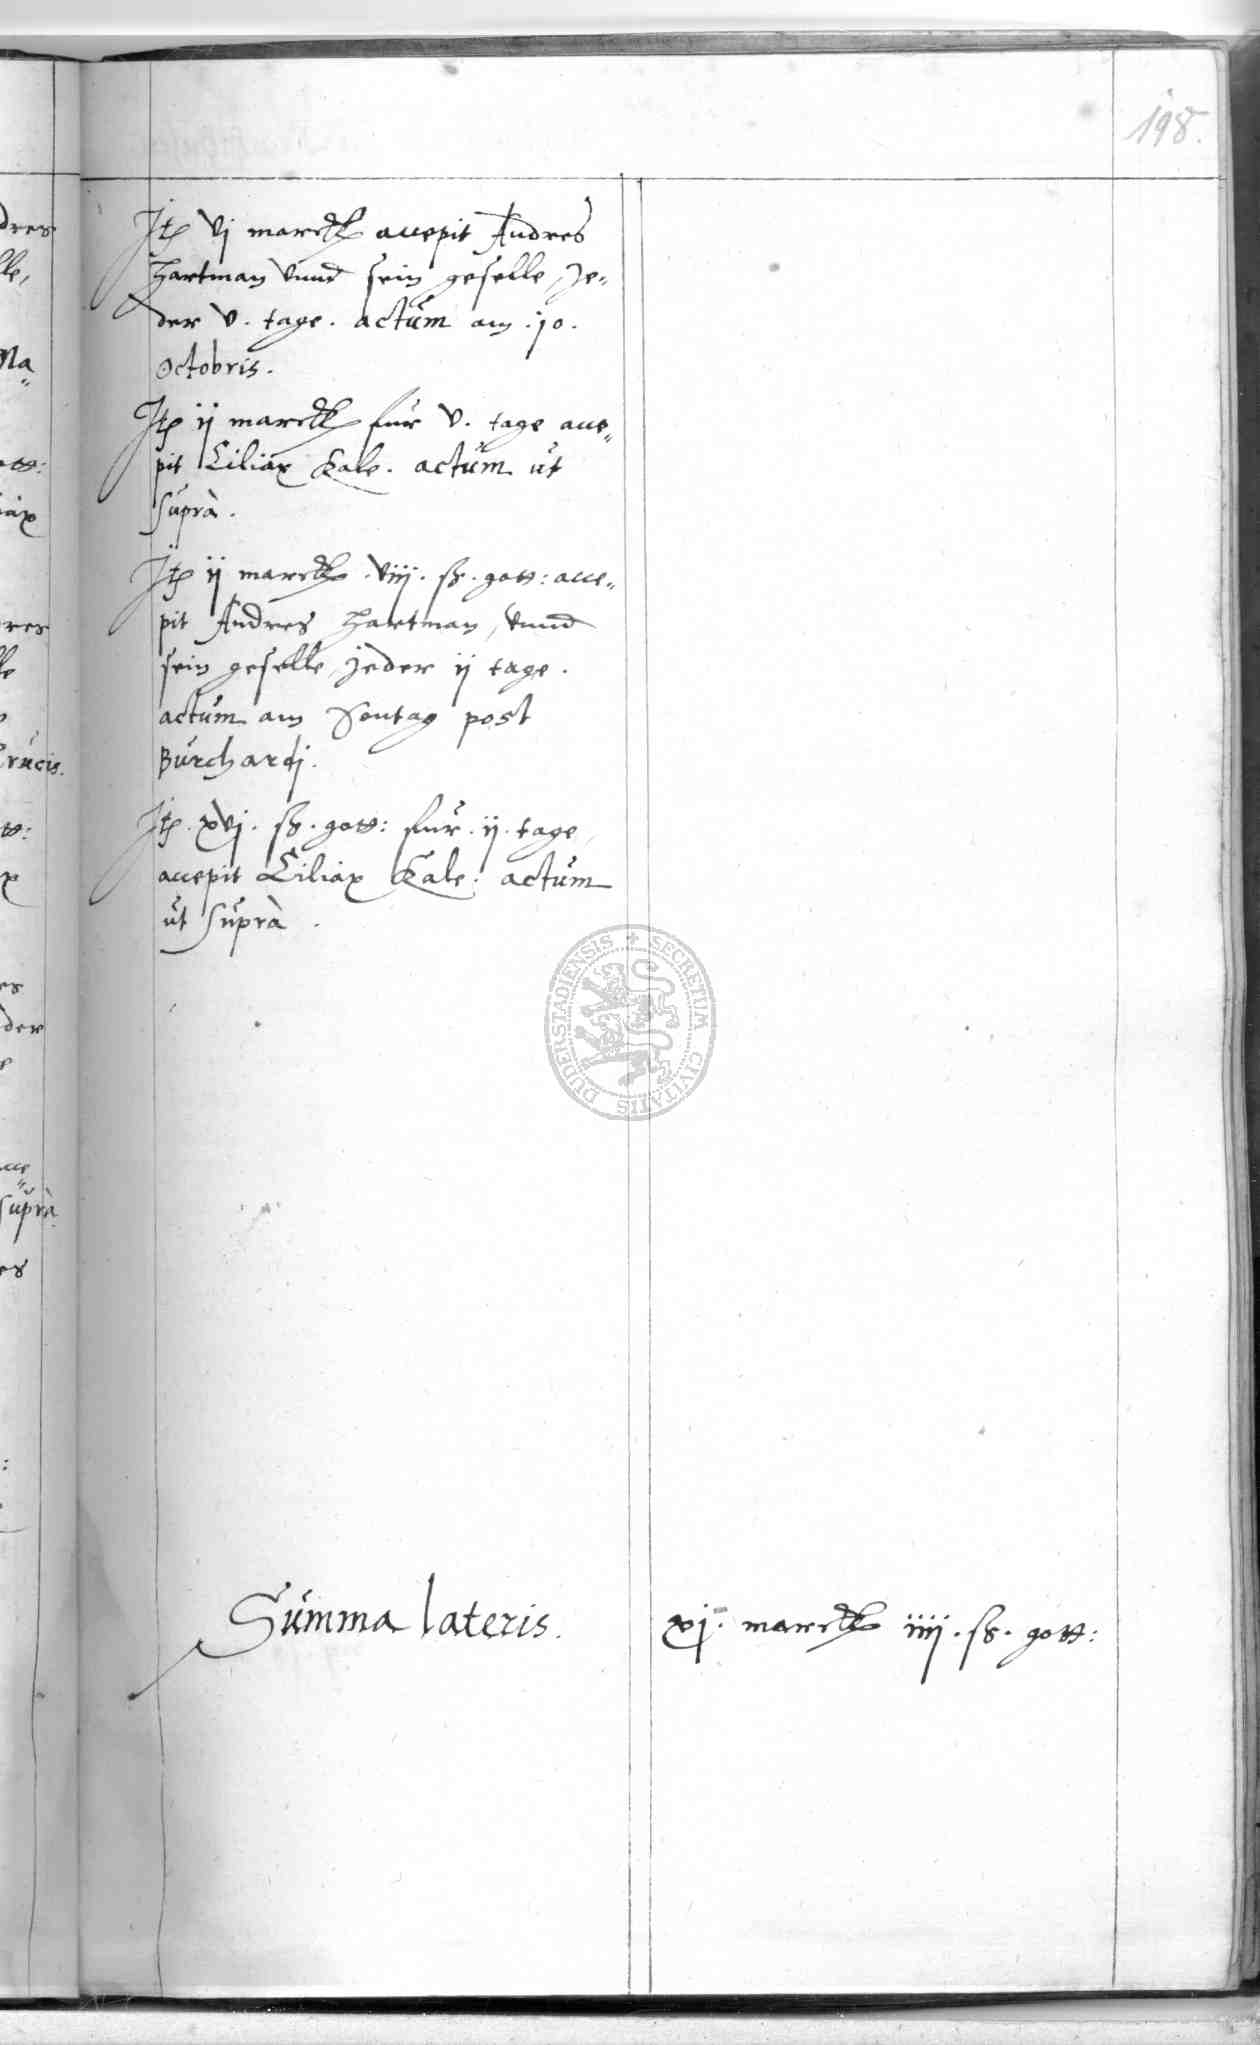 198.
Jtē vj marckk accepit Andres
Hartman vnnd sein geselle, Je-
der v. tage. actum am .10.
Octobris.
Jtē ij marckk fur v. tage acce-
pit Ciliax Kale. actum ut
suprà.
Jtē ij marckk .viij. sz. gott: acce-
pit Andres Hartman, vnnd
sein geselle, jeder ij tage.
actum am Sontag post
Burchardj.
Jtē .xvj. sz. gott: fur .ij. tage,
accepit Ciliax Kale. actum
ut suprà.
DUDERSTADIENSIS + SECRETUM CIVITATIS
Summa lateris. xj. marckk iiij. sz. gott:
dres
lle,
Ma-
ott:
iax
dres
lle
Crucis.
tt:
x
es
der
acce-
suprà
es